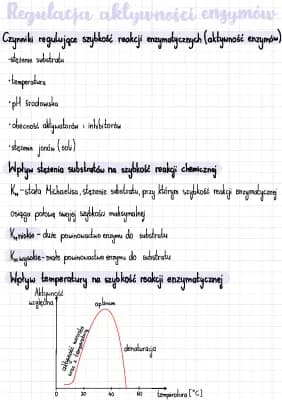 Regulacja aktywności enzymów
Czynniki regulujące szybkość reakcji enzymatycznych (aktywność enzymów)
-stężenie substratu
·temperatura
·pH środowiska
·obecność aktywatorów i inhibitorów
·stężenie jonów (soli)
Wpływ stężenia substratów na szybkość reakcji chemicznej
Km-stała Michaelisa, stężenie substratu, przy którym szybkość reakcji enzymatycznej
osiąga połowę swojej szybkości maksymalnej
Km niskie - duże powinowactwo enzymu do substratu
Km wysokie - małe powinowactwo enzymu do substratu
Wpływ temperatury na szybkość reakcji enzymatycznej
Aktywność
względna
optimum
aktywność wzrasta
wraz z temperaturą
denaturacja
0 20 40 60
temperatura [°C]